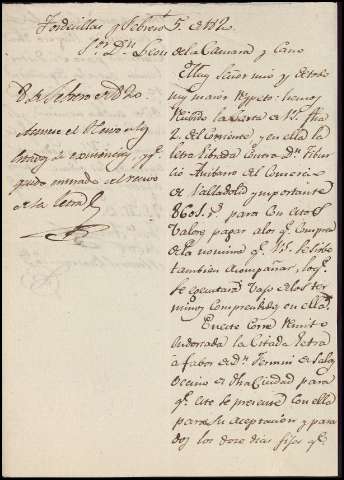 Tordesillas y Febrero 5. de 182
S.or D.n Leon de la Camara y Cano
Muy Señor mio y de todo
mi maior respeto: hemos
recibido la carta de V. fha
2. del corriente, y en ella la
letra librada contra D.n Tibur
cio del Comercio
de Valladolid y importante
para con estos
valores pagar alos q.e compren
de la nomina q.e V. se sirbe
tambien acompañar, lo q.e
se egecutará vajo de los ter
minos comprendidos en ella.
En este correo remito
endosada la citada letra
á fabor de D.n Fermin de
vecino de dha Ciudad para
q.e este se presente con ella
para su aceptacion, y para
dos los doce dias fijos q.e
8. de Febrero de 820.
y q.e
queda enterado del recivo
de la letra